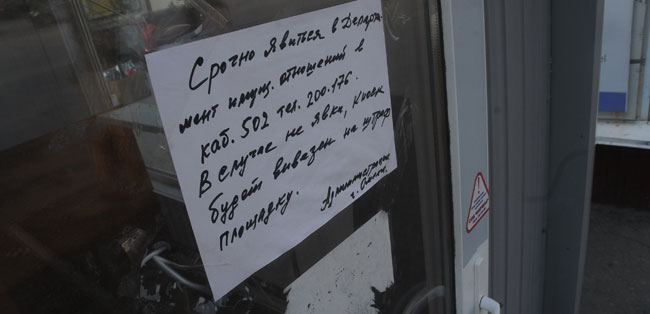 Срочно явиться в Департа-
мент имущ. отношений в
каб. 502 тел. 200-176.
В случае не явки, Киоск
будет вывезен на штраф
площадку.
Администрация
г.